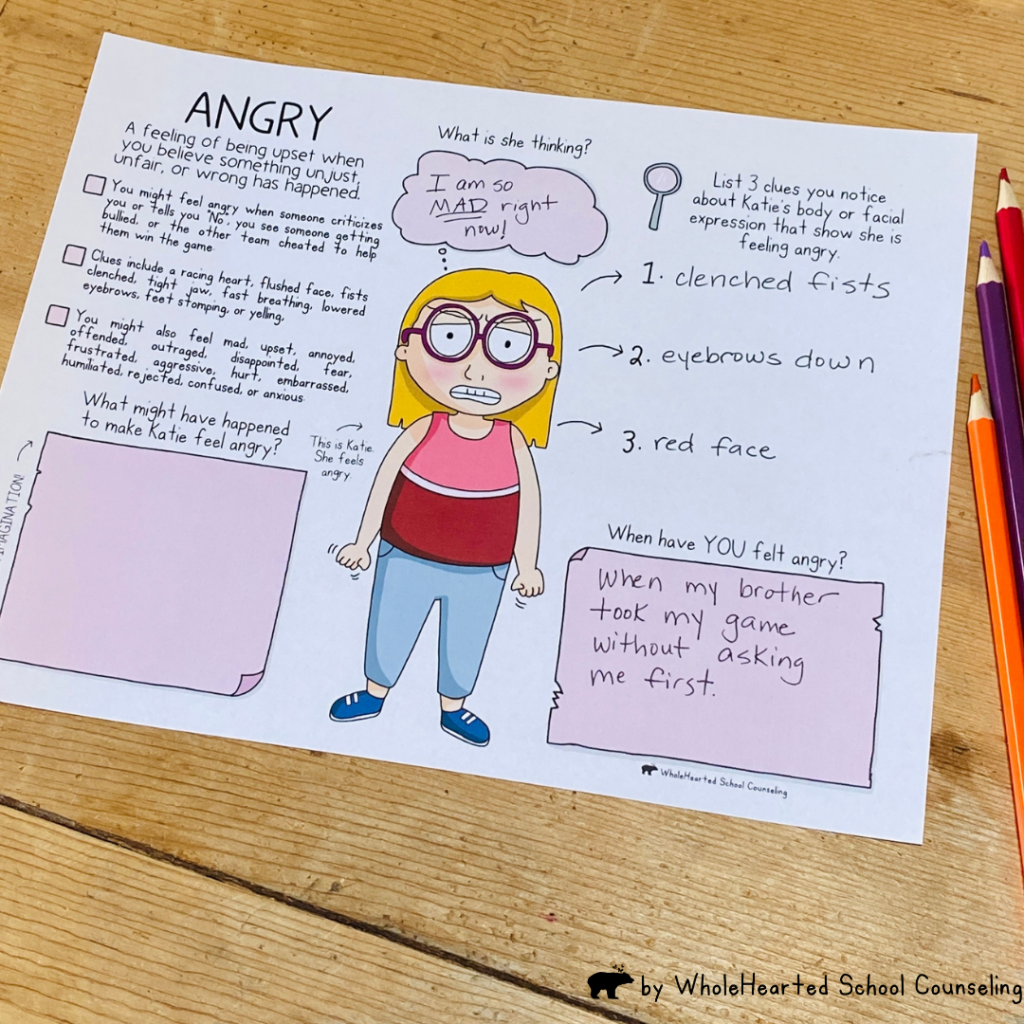 ANGRY
A feeling of being upset when
you believe something unjust,
unfair, or wrong has happened.
You might feel angry when someone criticizes
you or tells you "No", you see someone getting
bullied, or the other team cheated to help
them win the game.
Clues include a racing heart, flushed face, fists
clenched, tight jaw, fast breathing, lowered
eyebrows, feet stomping, or yelling.
You might also feel mad, upset, annoyed,
offended, outraged, disappointed, fear,
frustrated, aggressive, hurt, embarrassed,
humiliated, rejected, confused, or anxious.
What might have happened
to make Katie feel angry?
IMAGINATION!
This is Katie.
She feels
angry.
What is she thinking?
I am so
MAD right
now!
List 3 clues you notice
about Katie's body or facial
expression that show she is
feeling angry.
1. clenched fists
2. eyebrows down
3. red face
When have YOU felt angry?
When my brother
took my game
without asking
me first.
WholeHearted School Counseling
by WholeHearted School Counseling